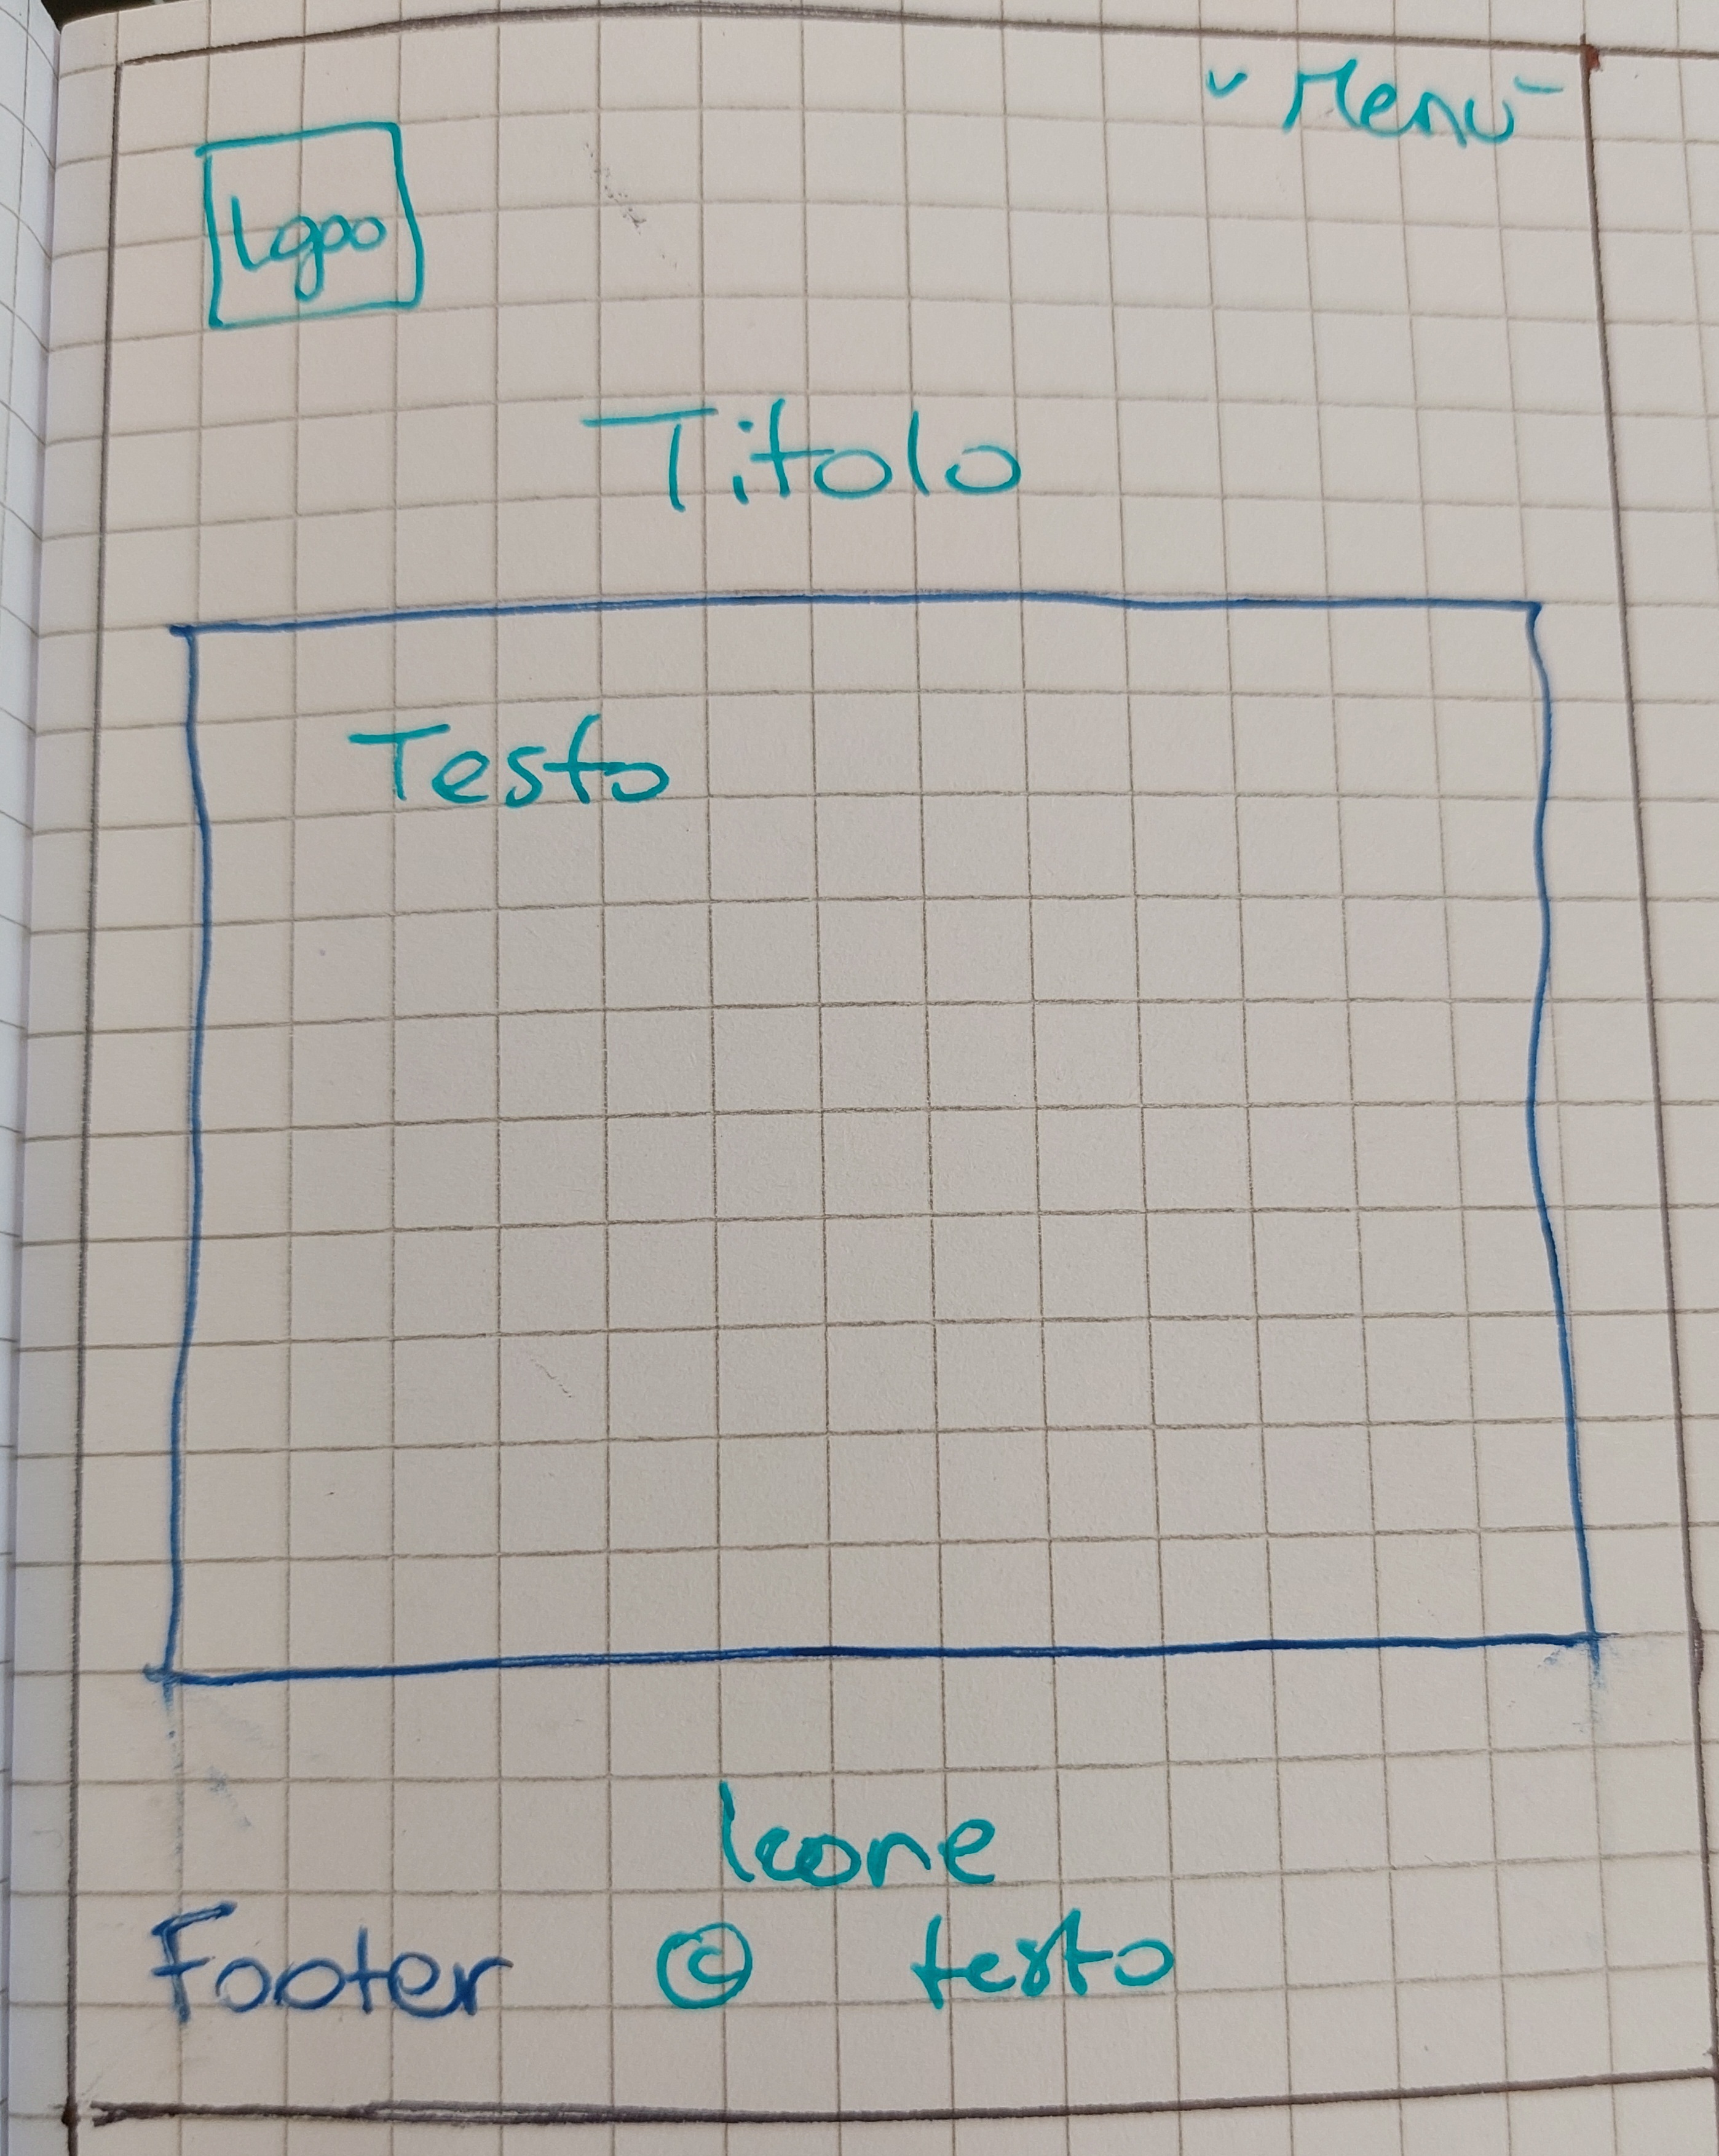 - Menù -
Logo
Titolo
Testo
Icone
Footer © testo